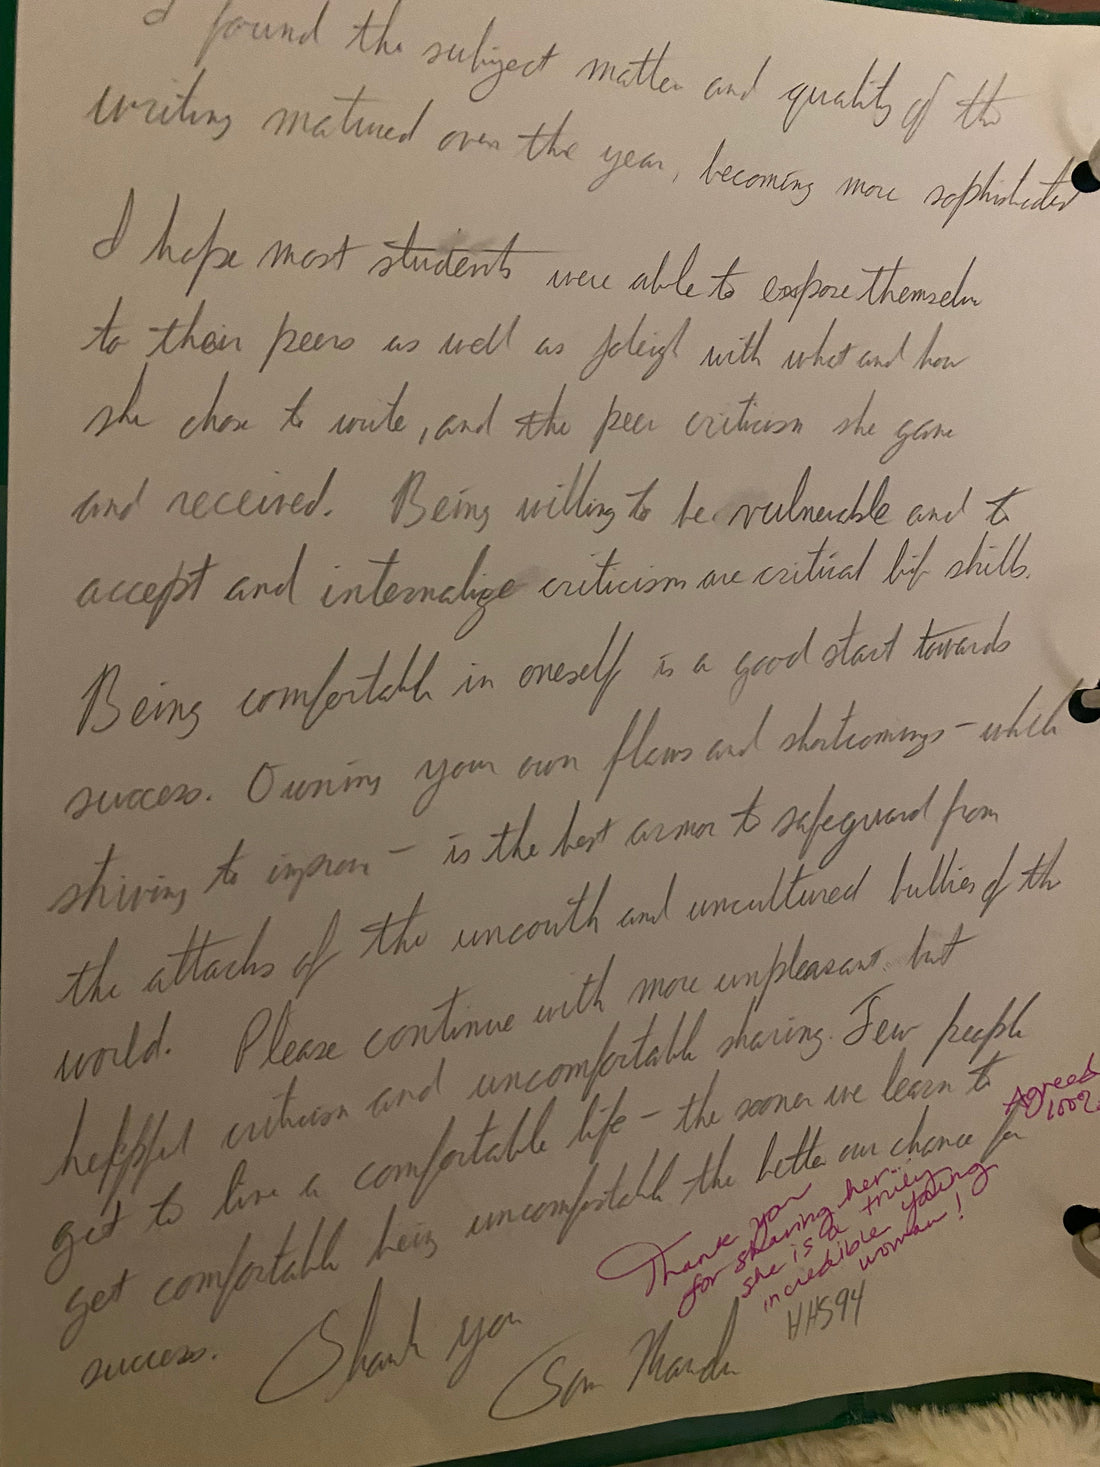 I found the subject matter and quality of the
writing matured over the year, becoming more sophisticated
I hope most students were able to expose themselves
to their peers as well as with what and how
she chose to write, and the peer criticism she gave
and received. Being willing to be vulnerable and to
accept and internalize criticism are critical life skills.
Being comfortable in oneself is a good start towards
success. Owning your own flaws and shortcomings - which
striving to improve - is the best armor to safeguard from
the attacks of the uncouth and uncultured bullies of the
world. Please continue with more unpleasant but
helpful criticism and uncomfortable sharing. Few people
get to live a comfortable life - the sooner we learn to
get comfortable being uncomfortable the better our chance for
success.
Thank you
HHS94
Agreed
100%
Thank you
for sharing her...
she is a truly
incredible young
woman!